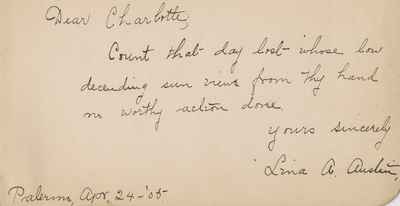 Dear Charlotte,
Count that day lost whose low
decending sun views from thy hand
no worthy action done.
yours sincerely
Lina A. Austin,
Palermo, Apr, 24-'05-